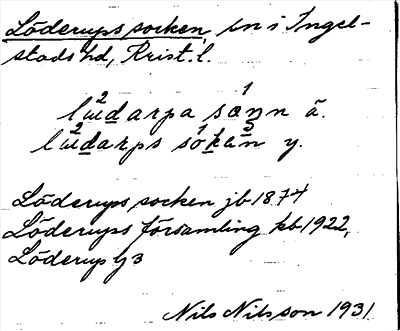 Löderups socken, sn i Ingel-
stads hd, Krist. l.
lɯdarpa sɑnn ä.
lɯdarps sokan y.
Löderups socken jb 1874
Löderups församling kb 1922,
Löderup
Nils Nilsson 1931